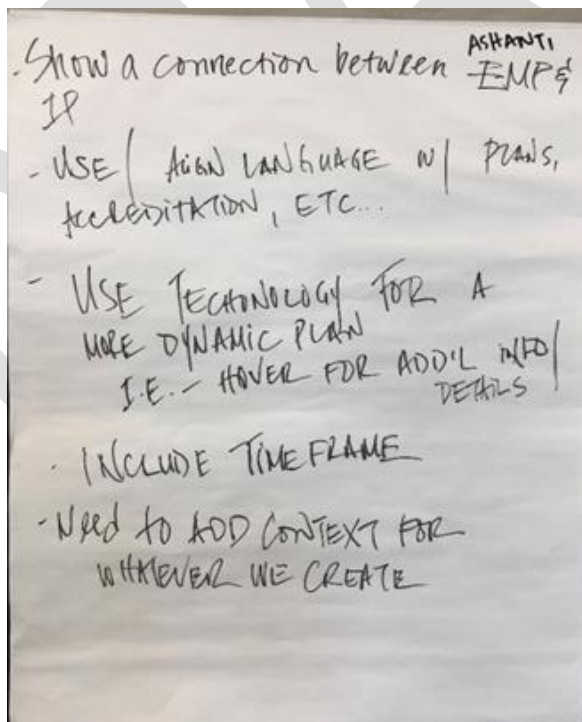 ASHANTI
- Show a connection between EMP &
IP
- USE / ALIGN LANGUAGE W/ PLANS,
ACCREDITATION, ETC...
- USE TECHONOLOGY FOR A
MORE DYNAMIC PLAN
I.E. - HOVER FOR ADD'L INFO/
DETAILS
- INCLUDE TIMEFRAME
- Need to ADD CONTEXT FOR
WHATEVER WE CREATE